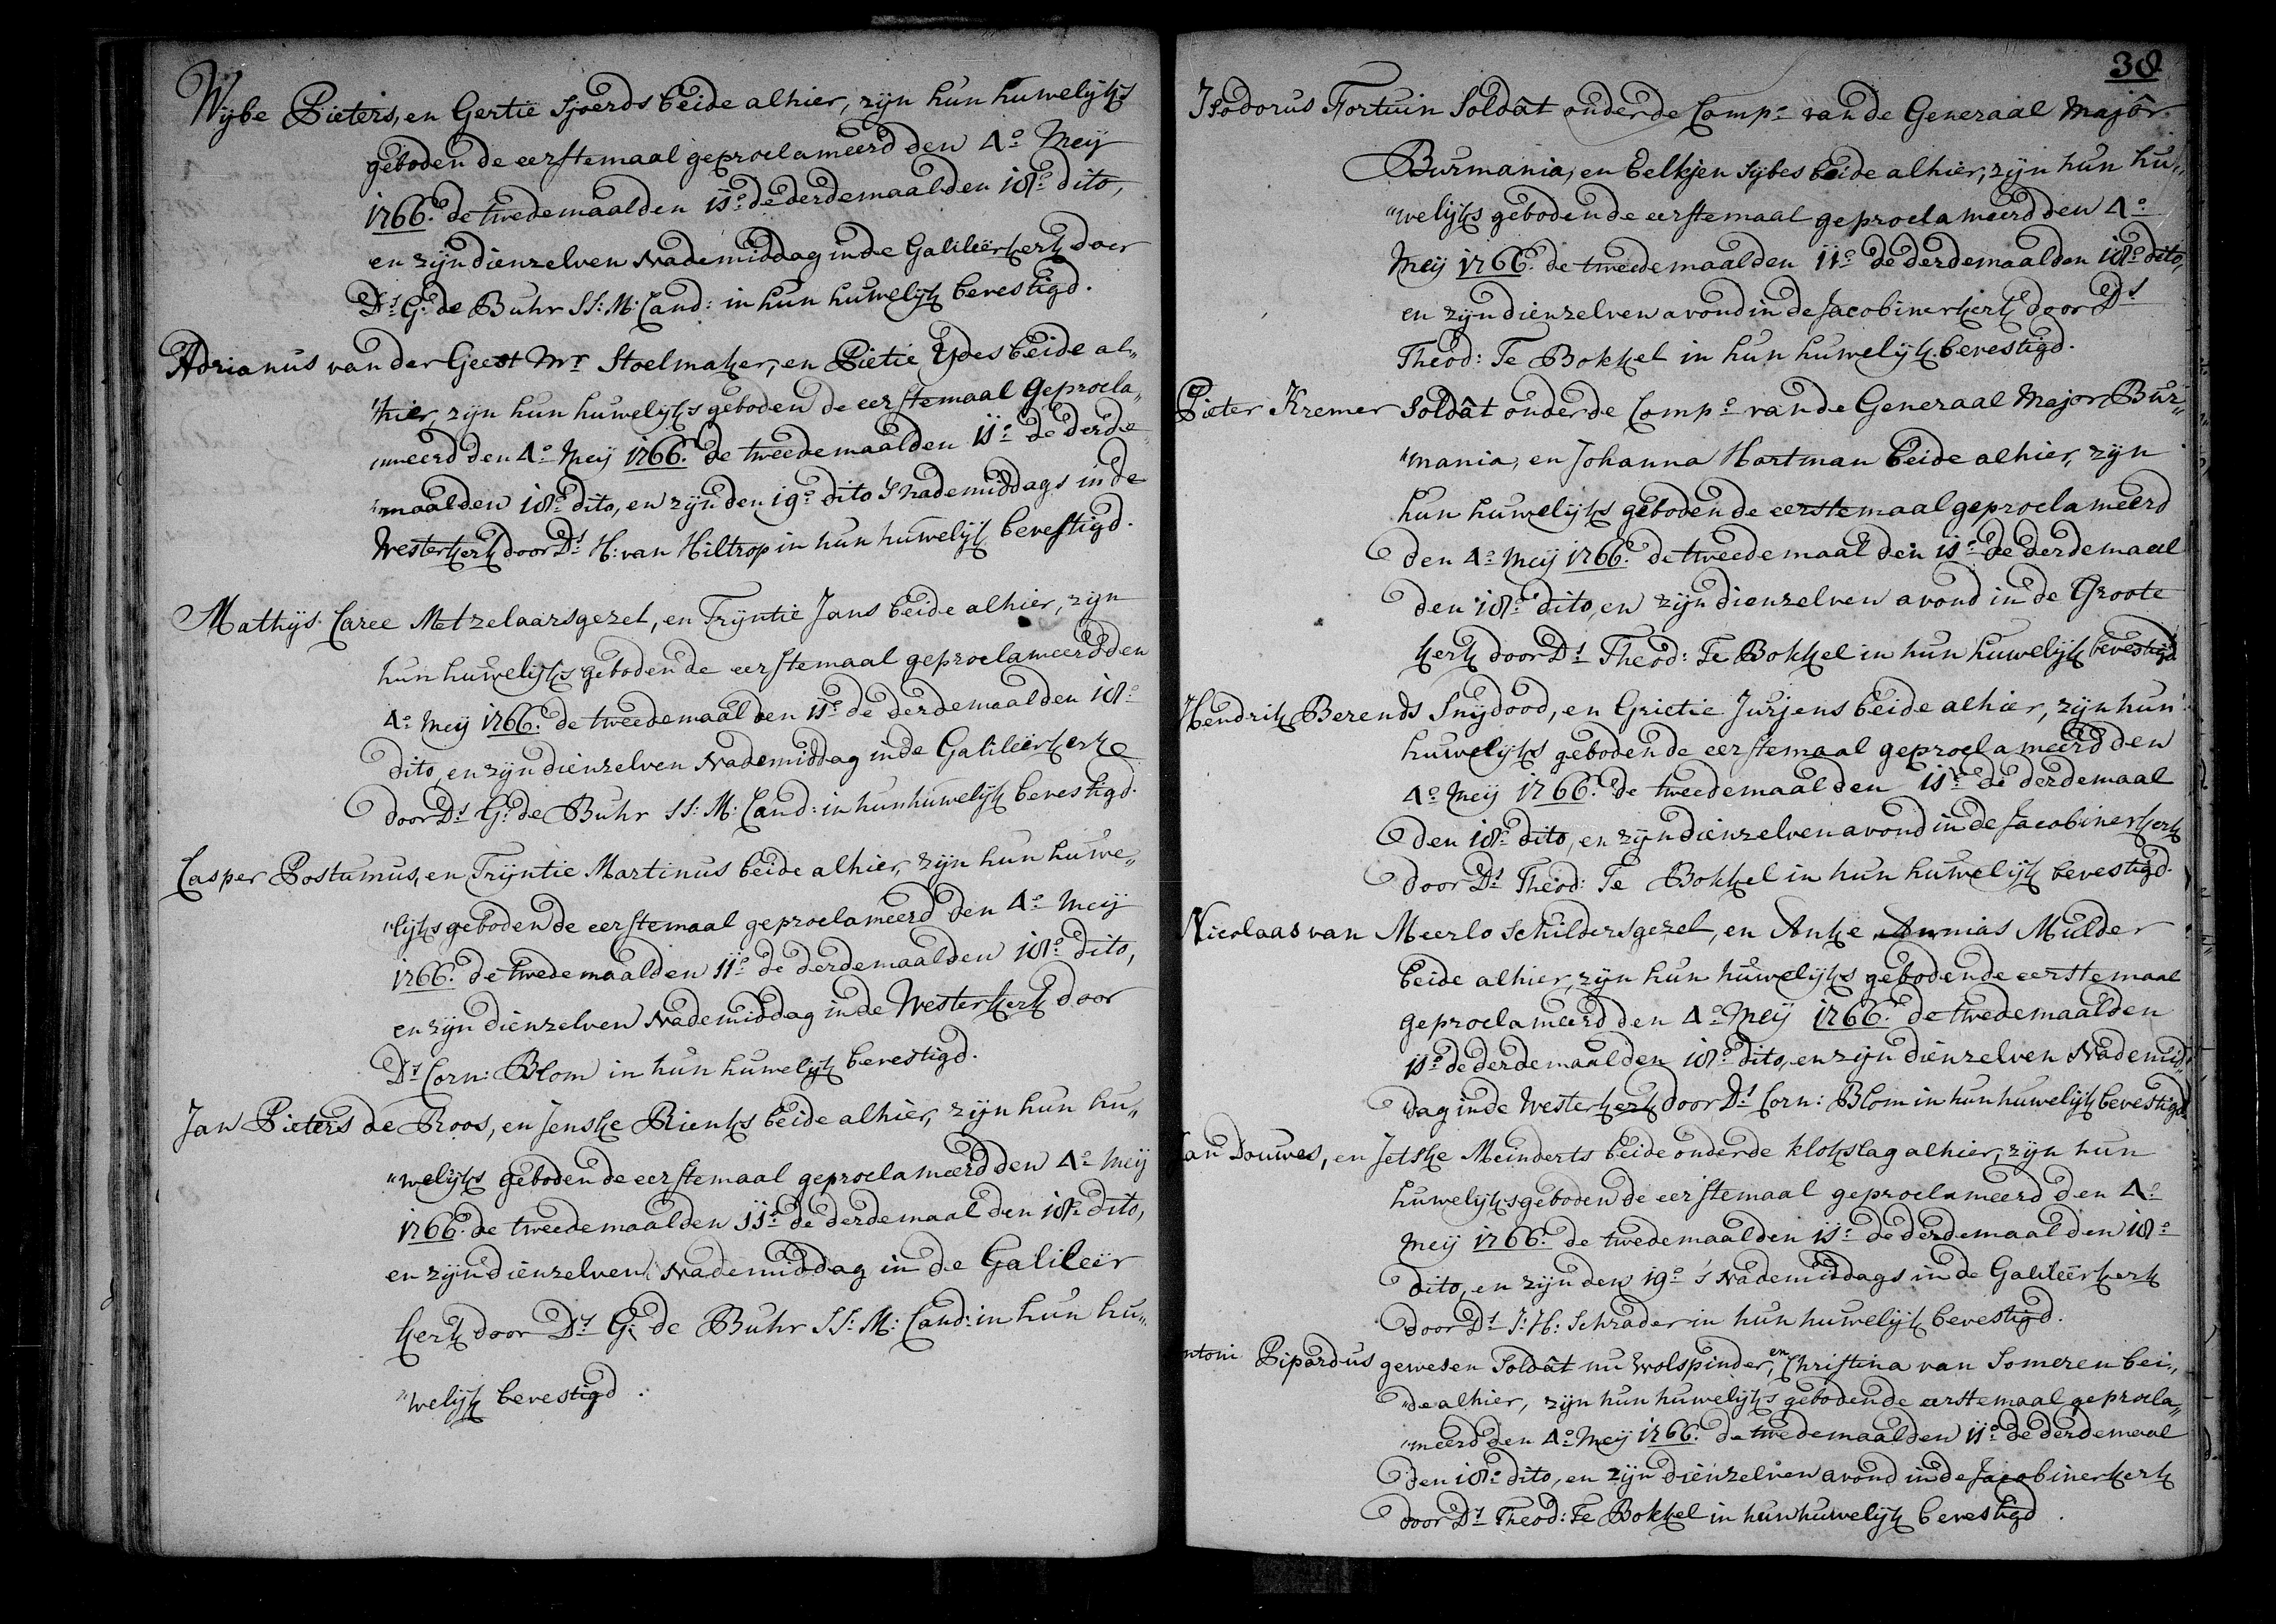 Wybe Pieters, en Gertie Sjoerds beide alhier, zyn hun huwelyks
geboden de eerstemaal geproclameerd den 4.o Meij
1766. de twedemaal den 11.o de derdemaal den 18.o dito,
en zyn dienzelven Nademiddag in de Galileërkerk door
Ds. G: de Buhr SS: M: Cand: in hun huwelyk bevestigd.
Adrianus van der Geest Mr. Stoelmaker, en Pietie Ypes beide al„
„hier, zyn hun huwelyks geboden de eerstemaal geprocla„
„meerd den 4.o Meij 1766. de tweedemaal den 11.o de derde
„maal den 18.o dito, en zyn den 19.o dito 's nademiddags in de
Westerkerk door Ds. H: van Hiltrop in hun huwelyk bevestigd.
Mathys Caree Metzelaarsgezel, en Tryntie Jans beide alhier, zyn
hun huwelyks geboden de eerstemaal geproclameerd den
4.o Meij 1766. de tweedemaal den 11.o de derdemaal den 18.o
dito, en zyn dienzelven Nademiddag in de Galileërkerk
door Ds. G: de Buhr SS: M: Cand: in hun huwelyk bevestigd.
Casper Postumus, en Tryntie Martinus beide alhier, zyn hun huwe„
„lyks geboden de eerstemaal geproclameerd den 4.o Meij
1766. de twedemaal den 11.o de derdemaal den 18.o dito,
en zyn dienzelven Nademiddag in de Westerkerk door
Ds. Corn: Blom in hun huwelyk bevestigd.
Jan Pieters de Roos, en Jenske Rienks beide alhier, zyn hun hu„
„welyks geboden de eerstemaal geproclameerd den 4.o Meij
1766. de tweedemaal den 11.o de derdemaal den 18.o dito,
en zyn dienzelven Nademiddag in de Galileër
kerk door Ds. G: de Buhr SS: M: Cand: in hun hu„
„welyk bevestigd.
38
Isodorus Fortuin Soldât onder de Comp.e van de Generaal Majôr
Burmania, en Eelkjen Sybes beide alhier, zyn hun hu„
„welyks geboden de eerstemaal geproclameerd den 4.o
Meij 1766. de tweedemaal den 11.o de derdemaal den 18.o dito,
en zyn dienzelven avond in de Jacobinerkerk door Ds.
Theod: Te Bokkel in hun huwelyk bevestigd.
Pieter Kremer Soldât onder de Comp.e van de Generaal Major Bur„
„mania, en Johanna Hartman beide alhier, zyn
hun huwelyks geboden de eerstemaal geproclameerd
den 4.o Meij 1766. de tweedemaal den 11.o de derdemaal
den 18.o dito, en zyn dienzelven avond in de Groote
kerk door Ds. Theod: Te Bokkel in hun huwelyk bevestigd
Hendrik Berends Snydood, en Grietie Jurjens beide alhier, zyn hun
huwelyks geboden de eerstemaal geproclameerd den
4.o Meij 1766. de tweedemaal den 11.o de derdemaal
den 18.o dito, en zyn dienzelven avond in de Jacobinerkerk
door Ds. Theod: Te Bokkel in hun huwelyk bevestigd.
Nicolaas van Meerlo Schildersgezel, en Anke Annias Mulder
beide alhier, zyn hun huwelyks geboden de eerstemaal
geproclameerd den 4.o Meij 1766. de twedemaal den
11.o de derdemaal den 18.o dito, en zyn dienzelven Nademid„
„dag in de Westerkerk door Ds. Corn: Blom in hun huwelyk bevestigd.
Jan Douwes, en Jetske Meinderts beide onder de klokslag alhier, zyn hun
huwelyksgeboden de eerstemaal geproclameerd den 4.o
Meij 1766. de twedemaal den 11.o de derdemaal den 18.o
dito, en zyn den 19.o 's Nademiddags in de Galileërkerk
door Ds. J: H: Schrader in hun huwelyk bevestigd.
ntoni Pipardus gewesen Soldât nu Wolspinder, en Christina van Someren bei„
„de alhier, zyn hun huwelyks geboden de eerstemaal geprocla„
„meerd den 4.o Meij 1766. de twedemaal den 11.o de derdemaal
den 18.o dito, en zyn dienzelven avond in de Jacobinerkerk
door Ds. Theod: Te Bokkel in hun huwelyk bevestigd.